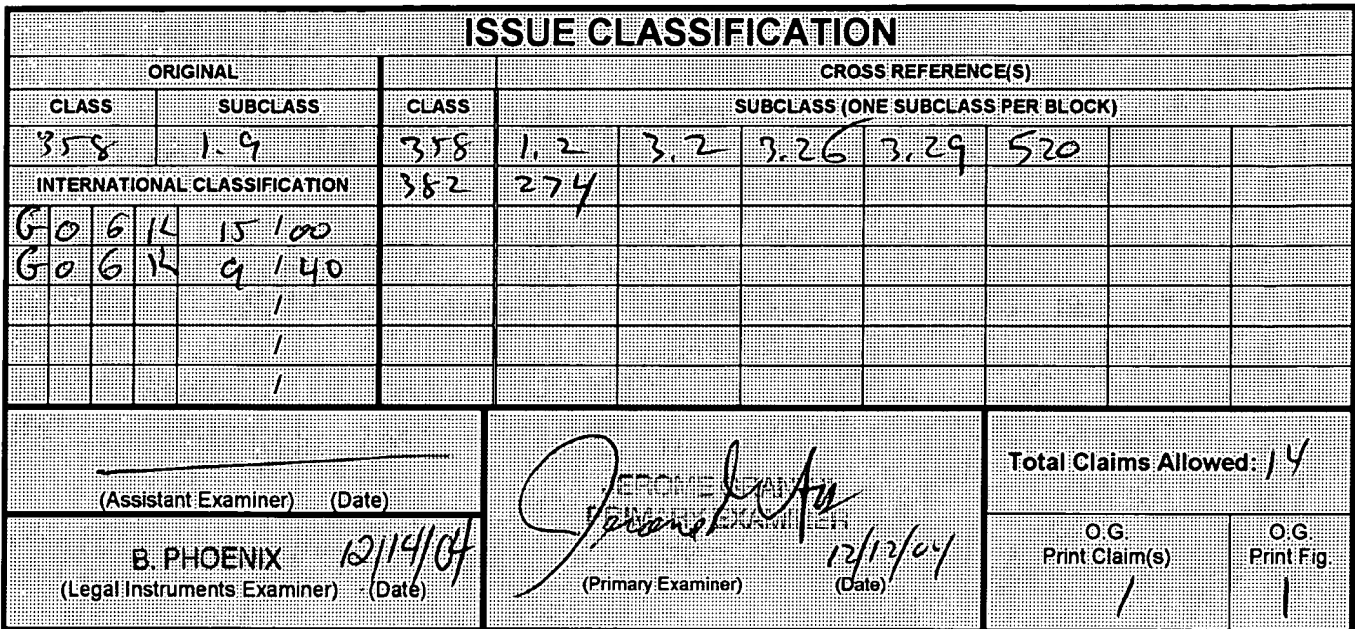 ISSUE CLASSIFICATION
ORIGINAL CROSS REFERENCE(S)
CLASS SUBCLASS CLASS SUBCLASS (ONE SUBCLASS PER BLOCK)
358 1.9 358 1.2 3.2 3.26 3.29 520
INTERNATIONAL CLASSIFICATION 382 274
G 0 6 K 15 / 00
G 0 6 K 9 / 40
/
/
/
(Assistant Examiner) (Date)
B. PHOENIX 12/14/04
(Legal Instruments Examiner) (Date)
JEROME GRANT
PRIMARY EXAMINER
12/12/04
(Primary Examiner) (Date)
Total Claims Allowed: 14
O.G. Print Claim(s)
1
O.G. Print Fig.
1